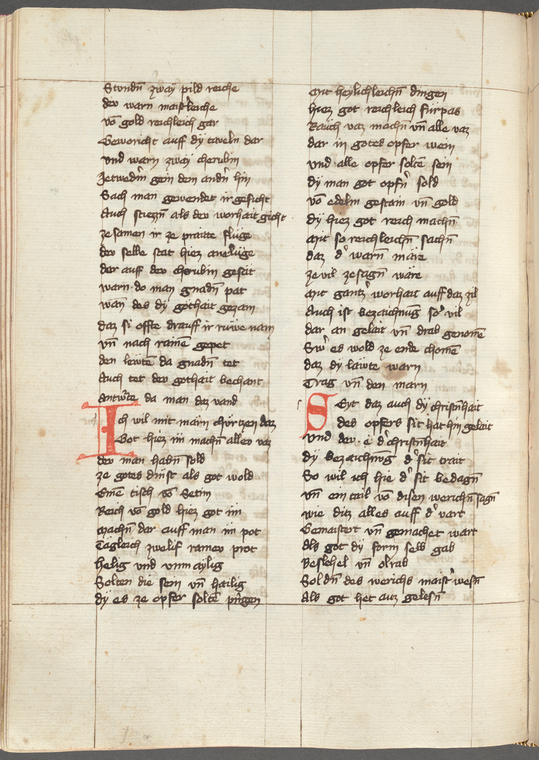 Stundn̄ zway pild reiche
der warn maisterleiche
vō gold reichleich gar
Geworicht auff dy taveln dar
vnd warn zway cherubin
Jetwedm̄ gein dem andn̄ hin
Sach man gewendet ir gesicht
Auch stiezn̄ als der worhait gicht
ze samen ir ze praitte fluge
der selbe stat hiez
dar auf der cherubin gesāt
warn do man gnadn̄ pat
wan des dy gothait gezam
daz si offte drauff ir ruewe nam
vn̄ nach rainē gepet
den lewtē da gnadn̄ tet
Auch tet der gothait bechant
antwūrt da man daz vand
Ich wil mit main chūrtzen daz
Got hiez im machn̄ alles vaz
der man habn̄ sold
ze gotes dinst als got wold
Eine tisch vō Setim
Reich vō gold hiez got im
machn̄ dar auff man im pot
Tagleich zwelif rainew prot
helig vnd vnmaylig
Solten die sein vn̄ hailig
dy es ze opfer soltē pringen
mit heylichleichn̄ dingen
hiez got reichleich fūrpas
Rauch vaz machn̄ vn̄ alle vaz
dar in gotes opfer wein
vnd alle opfer soltē sein
dy man got opfn̄ sold
vō edelm gestain vn̄ gold
dy hiez got reich machn̄
mit so reichleichn̄ sachn̄
daz d' warn̄ maere
ze vil ze sagn̄ wāre
mit gantz' worhait auff daz zil
Auch ist bezaichnūg so' vil
dar an gelait vn̄ drab genomē
Sw' es wold ze ende chomē
daz dy lāwte warn
Trag vn̄ den marn
Seyt daz auch dy christnhait
des opfers sit hat hin gelait
vnd der e d' christnhait
dy bezaichnūg d' sit trait
So wil ich hie d' sit bedagn̄
vn̄ ein tail vō disen werichn̄ sagn̄
wie ditz alles auff d' vart
Gemaistert vn̄ gemachet wart
Als got dy form selb gab
Beslehel vn̄ olrab
Soldn̄ des werichs maist' wesn̄
Als got het auz gelesn̄